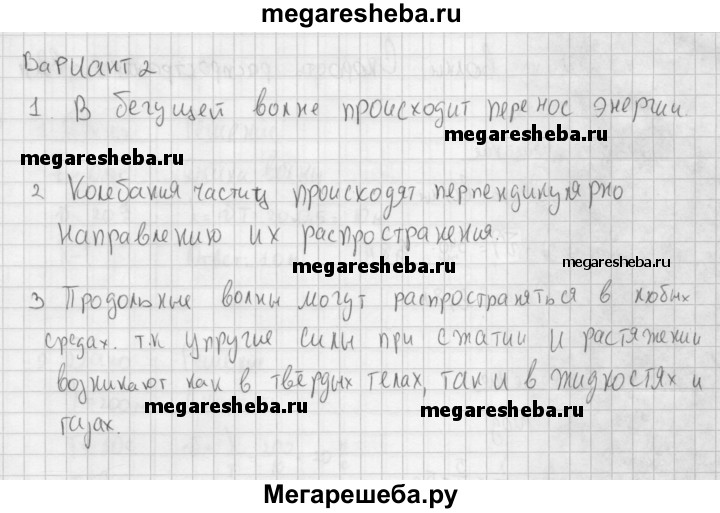 megaresheba.ru
Вариант 2
1. В бегущей волне происходит перенос энергии.
megaresheba.ru
megaresheba.ru
2 Колебания частиц происходят перпендикулярно
направлению их распространения.
megaresheba.ru
megaresheba.ru
3 Продольные волны могут распространяться в любых
средах. т.к упругие силы при сжатии и растяжении
возникают как в твёрдых телах, так и в жидкостях и
megaresheba.ru
megaresheba.ru
газах.
Мегарешеба.ру